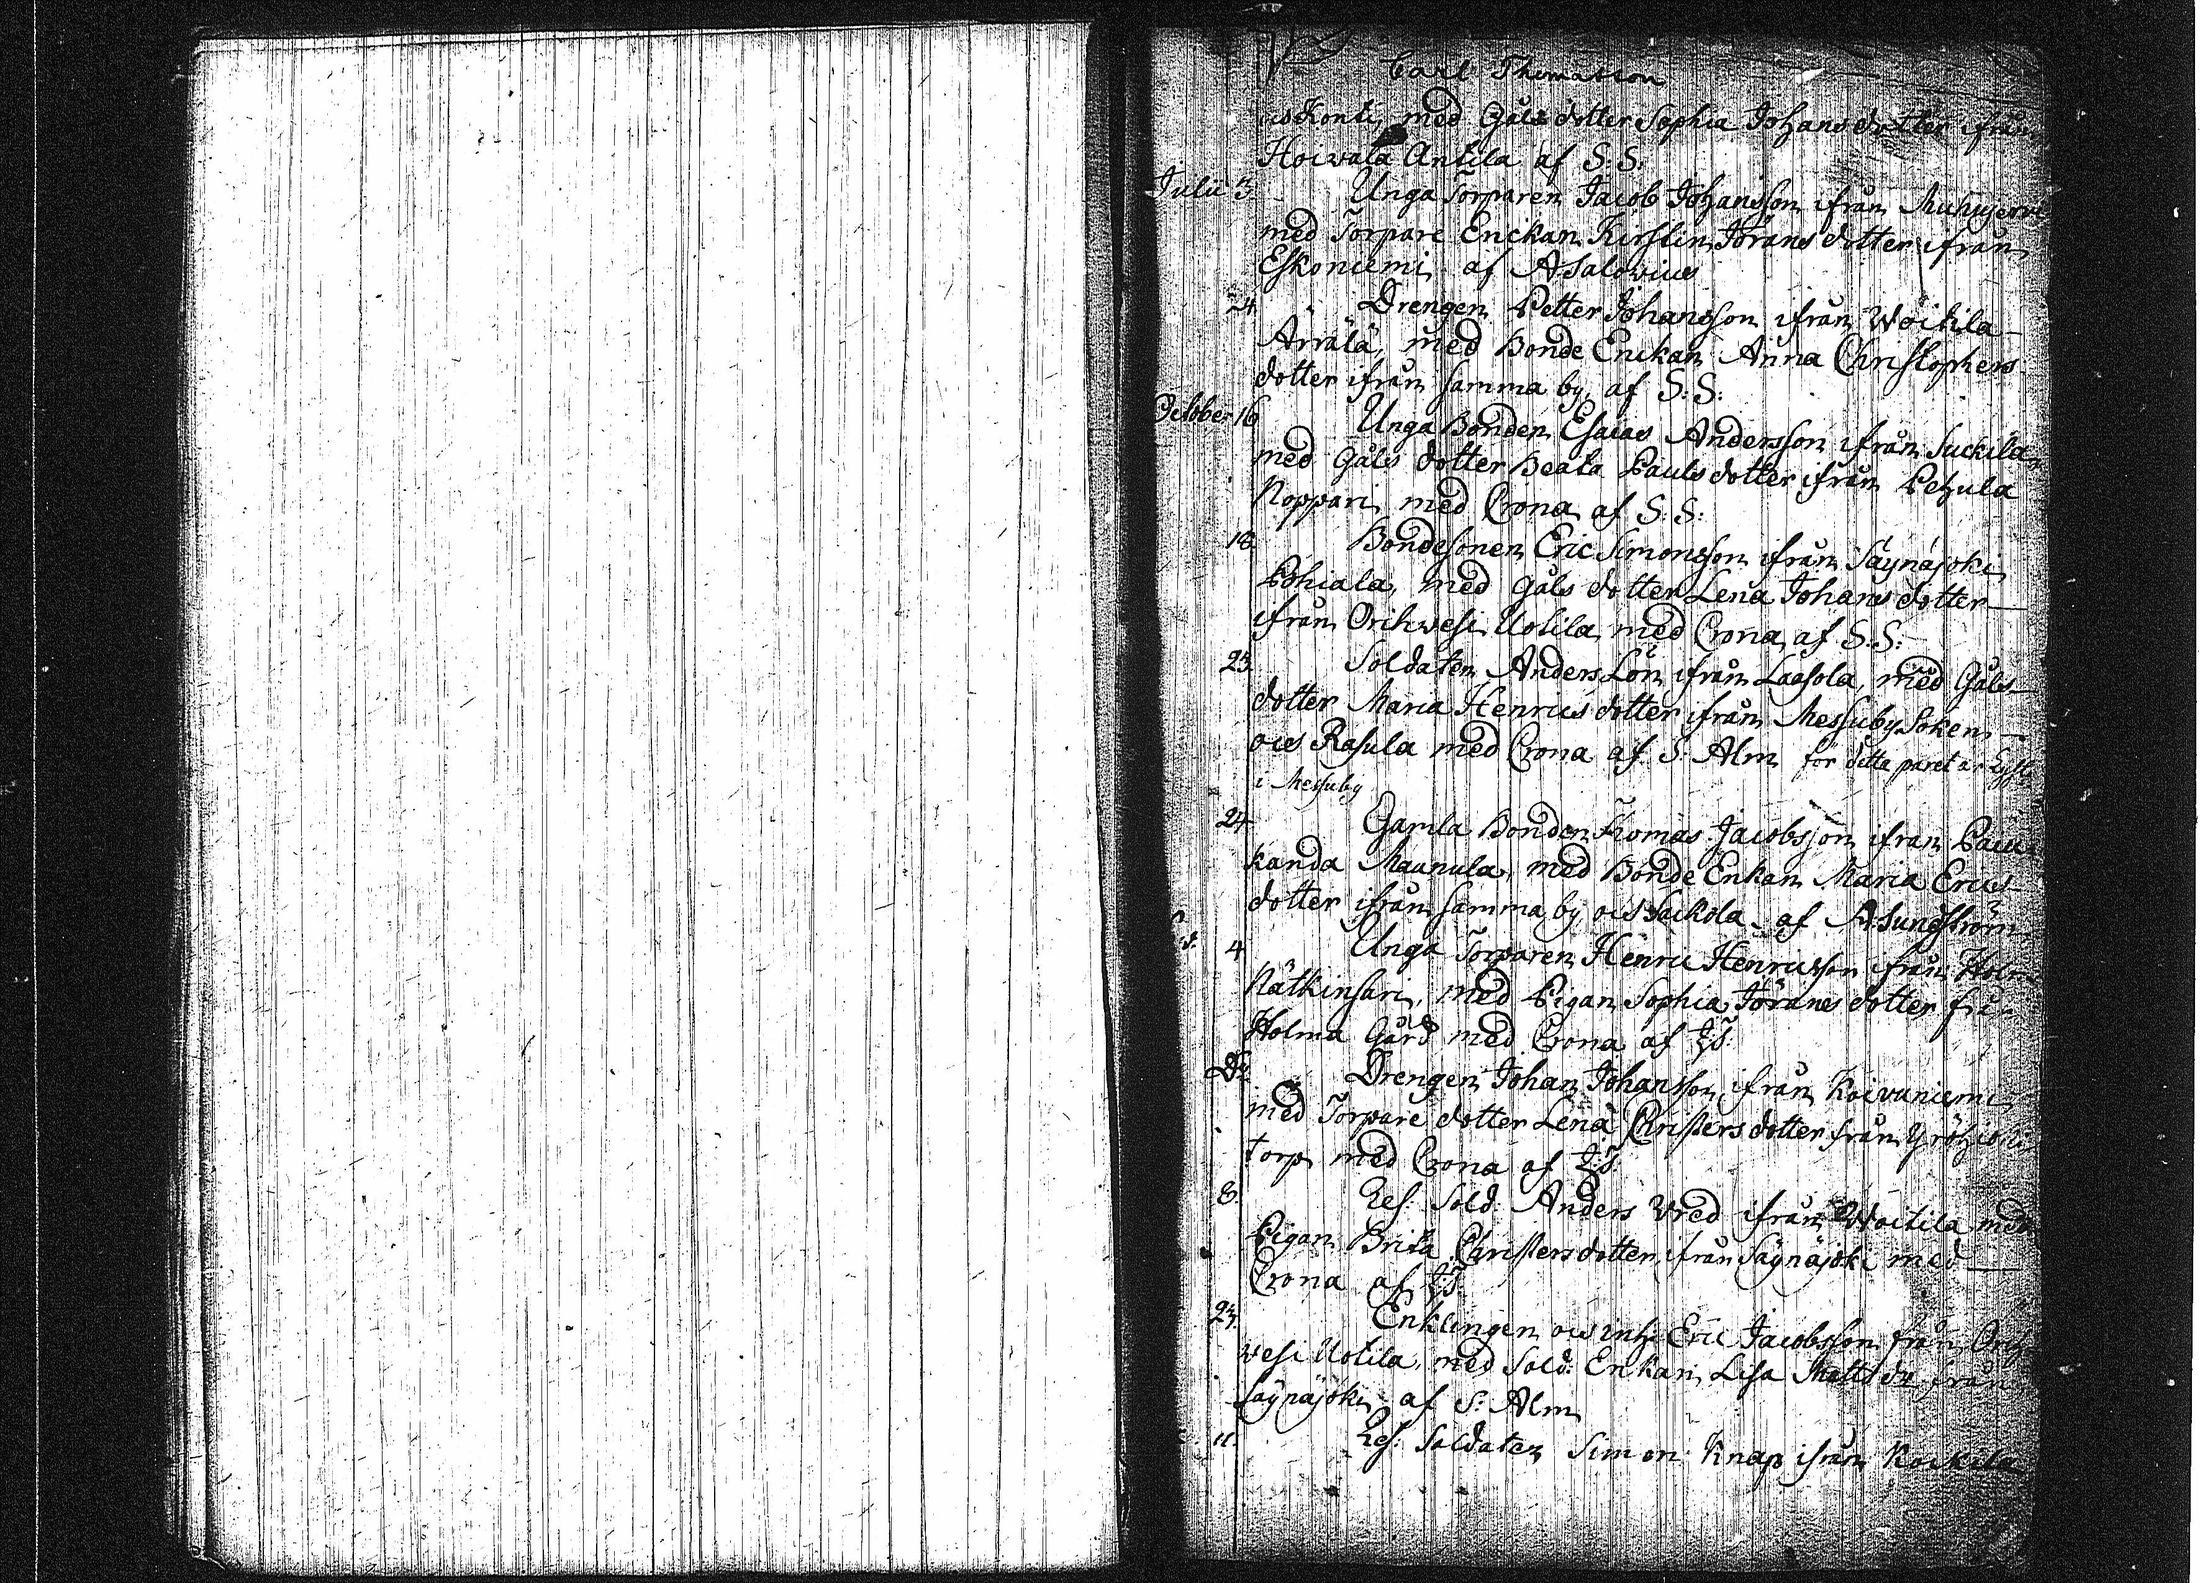 Carl Thomasson
ocs Konti, med Gåls dotter Sophia Johans dotter ifrån
Hoivala Antila af S:S:
Julii 3. Unga Torparen Jacob Johansson ifrån
med Torpare Enckan Kirstin Jörans dotter ifrån
Eskoniemi af A Salovius
24. Drengen Petter Johansson ifrån Woitila
Arrälä, med Bonde Enckan Anna Christophers
dotter ifrån samma by, af S:S:
October 16 Unga Bonden Esaias Andersson ifrån Suckila
med Gåls dotter Beata Pauls dotter ifrån Pehula
Noppari, med Crona af S:S:
18. Bondesonen Eric Simonsson ifrån Säynäjoki
Pohiala, med Gåls dotter Lena Johans dotter
ifrån Orihwesi Uotila med Crona af S:S:
23. Soldaten Anders Lön ifrån Laasola, med Gåls
dotter Maria Henrics dotter ifrån Messuby Soken
ocs Rasula med Crona af S: Alm för detta paret är Lyst
i Messuby
24 Gamla Bonden Thomas Jacobsson ifrån
kanda Maunula, med Bonde Enkan Maria Erics
dotter ifrån samma by ocs af A Sundström
4 Unga Torparen Henric Henricsson ifrån Holm
Nätkinsari, med Pigan Sophia Jörans dotter
Holma Gård med Crona af
Do Drengen Johan Johansson ifrån Koivuniemi
med Torpare dotter Lena Christers dotter från
torp med Crona af
8. Res. Sold. Anders Vred ifrån Woitila med
Pigan Brita Christersdotter ifrån Säynäjoki med
Crona af
27. Enklingen ocs inh: Eric Jacobsson från Orih
vesi Uotila, med Sold. Enkan Lisa Matts dr från
Säynäjoki af S: Alm
11. Res. Soldaten Simon Knap ifrån Koikila